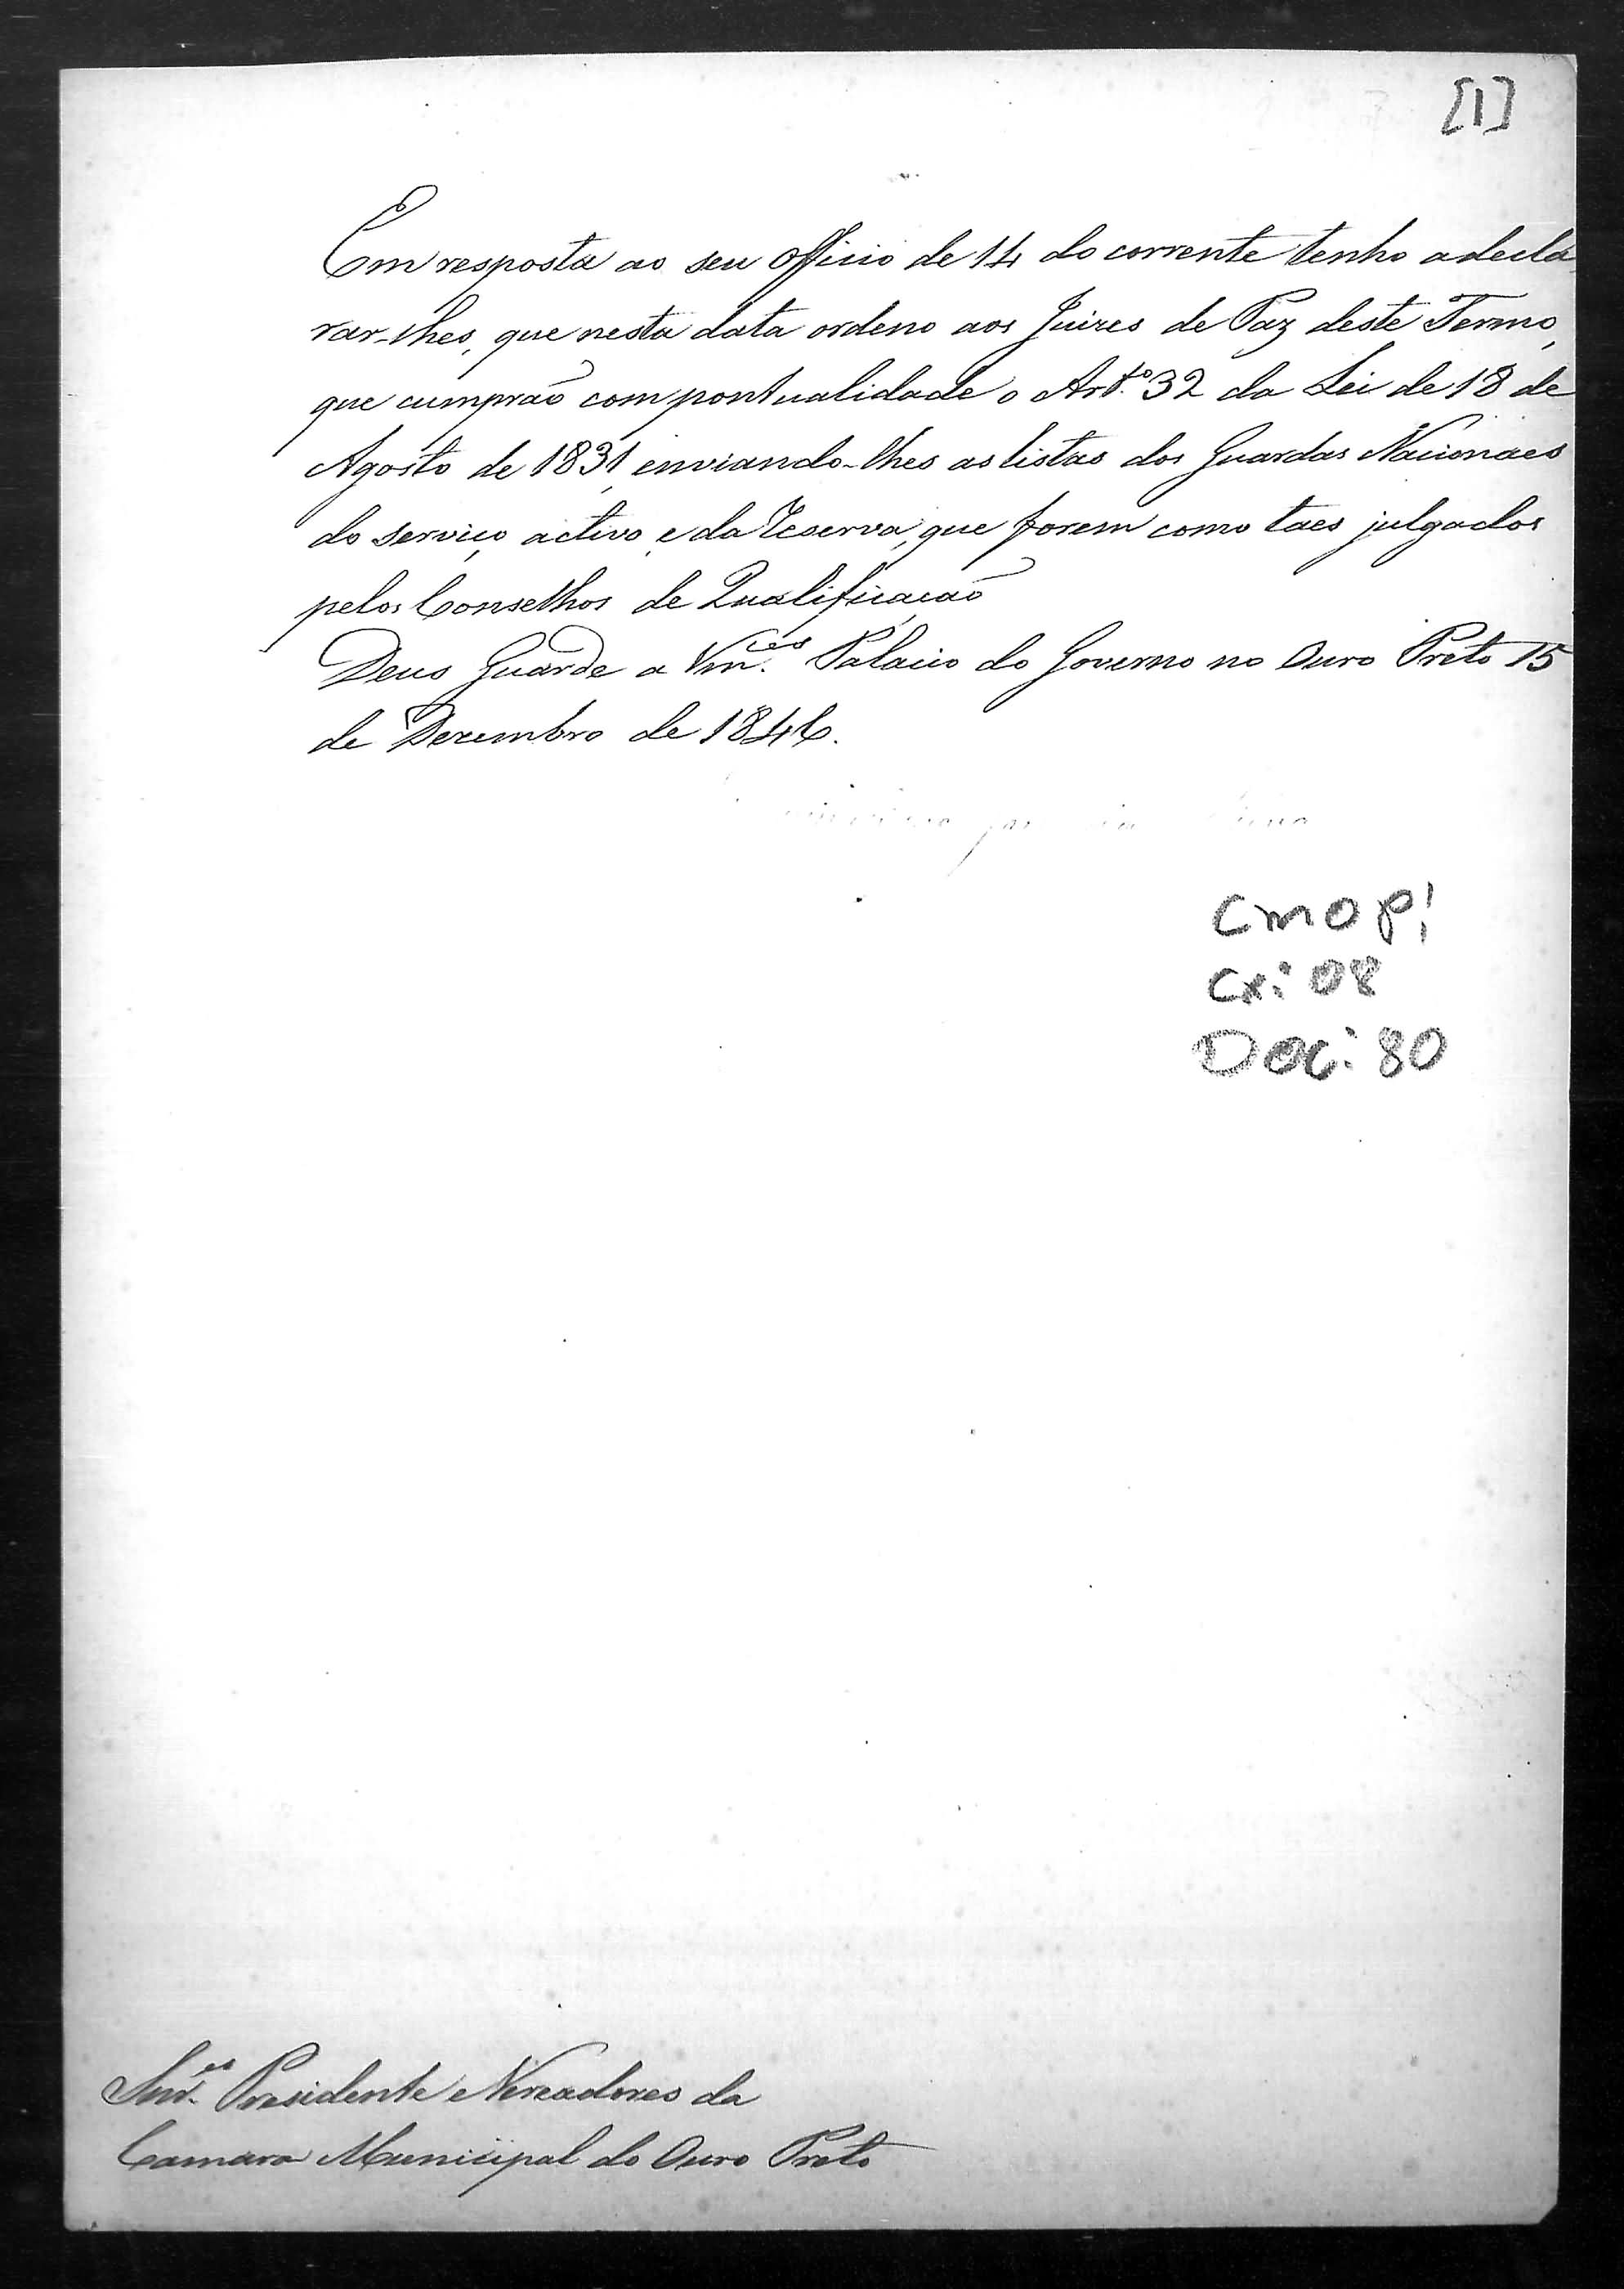 [1]
Em resposta ao seu officio de 14 do corrente tenho a decla
rar-lhes, que nesta data ordeno aos Juizes de Paz deste Termo,
que cumprão com pontualidade o Art.º 32 da Lei de 18 de
Agosto de 1831, enviando-lhes as listas dos Guardas Nacionaes
do serviço activo, e da reserva, que forem como taes julgados
pelos Conselhos de Qualificação
Deus Guarde a Vm.ces Palacio do Governo no Ouro Preto 15
de Dezembro de 1846.
CMOP:
Cx: 08
Doc: 80
Snr.es Presidente e Vereadores da
Camara Municipal do Ouro Preto